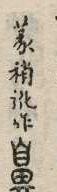 篆稍訛作